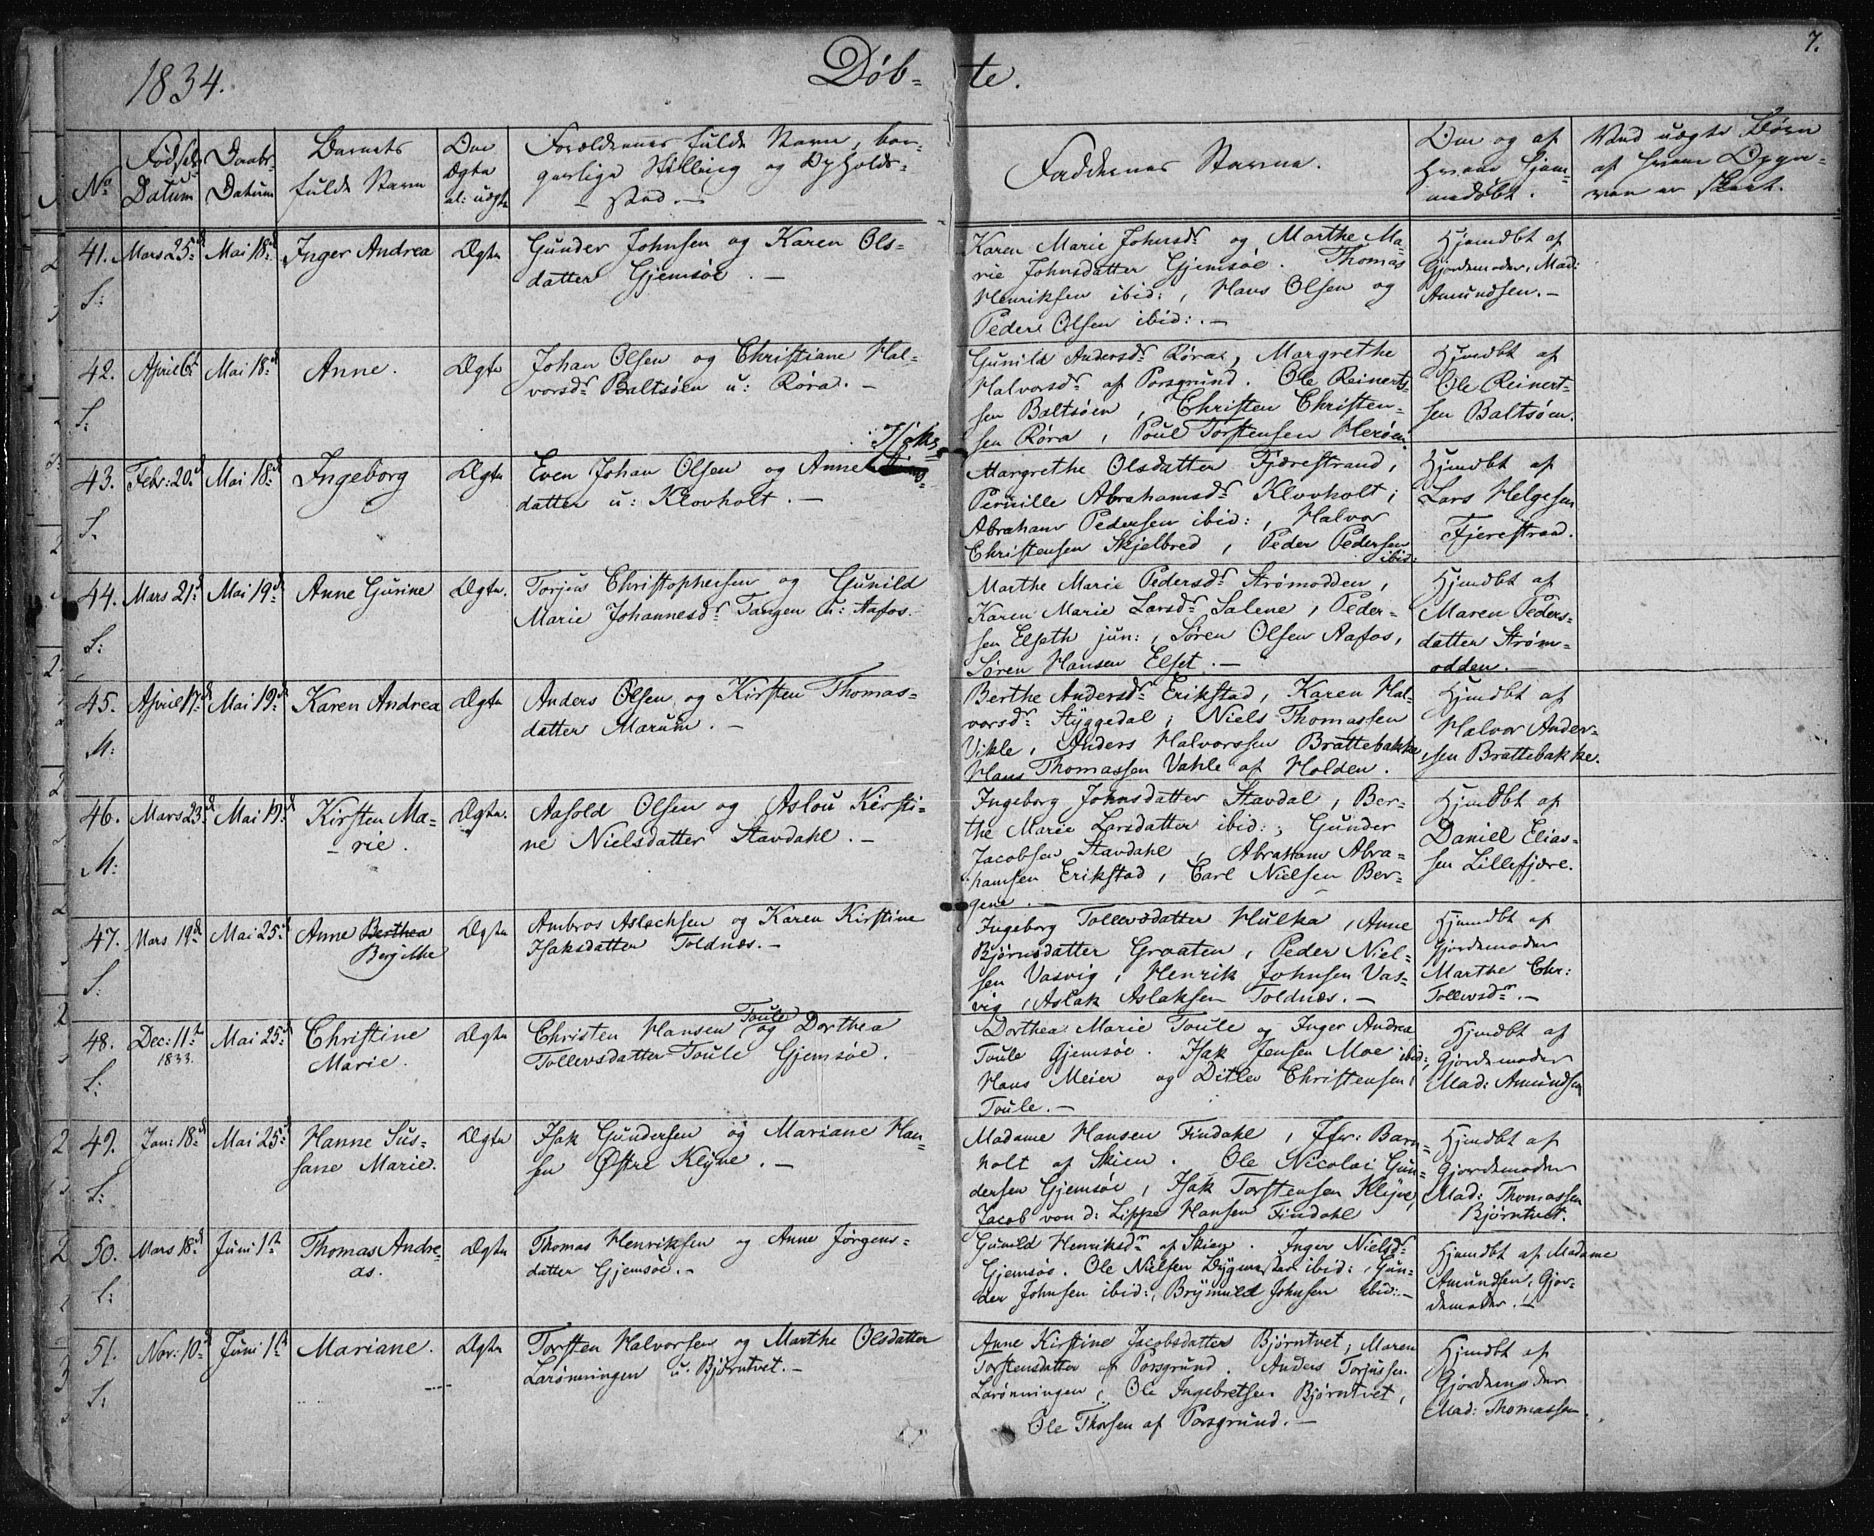 7.
1834.
Døb-te.
No
Fødsels Datum
Daabs Datum
Barnets fulde Navn
Om Ægte el: uægte
Forældrenes fulde Navn, borgerlige Stilling og Opholdsstad.—
Faddernes Navne.
Om og af hvem hjemmedøbt.
Ved uægte Børn af hvem
41. Mars 25de Mai 18de Inger Andrea Ægte
S:
Gunder Johnsen og Karen Ols-
datter Gjemsøe.—
Karen Marie Johnsdr og Marthe Ma-
rie Johnsdatter Gjemsøe. Thomas
Henriksen ibid:, Hans Olsen og
Peder Olsen ibid:.—
Hjemdbt af
Gjordemoder, Mad:
Amundsen.—
42. April 6te Mai 18de Anne. Ægte
S:
Johan Olsen og Christiane Hal-
vorsdr Baltsøen u: Røra.—
Gunild Andersdr Røra, Margrethe
Halvorsdr af Porsgrund. Ole Reinert-
sen Baltsøen, Christen Christen-
sen Røra, Poul Torstensen Herøen
Hjemdbt af
Ole Reinert-
sen Baltsøen.
43. Febr: 20de Mai 18de Ingeborg Ægte
S.
Isaks
Even Johan Olsen og Anne
datter u: Klovholt.—
Margrethe Olsdatter Fjærestrand,
Pernille Abrahamsdr Klovholt;
Abraham Pedersen ibid:, Halvor
Christensen Skjelbred, Peder Pedersen
ibid:
Hjemdbt af
Lars Helgesen
Fjerestran.
44. Mars 21de Mai 19de Anne Gurine Ægte.
S:
Torjus Christophersen og Gunild
Marie Johannesdr Tangen u: Aafos.
Marthe Marie Pedersdr Strømodden,
Karen Marie Larsdr Salene, Peder-
sen Elseth jun:, Søren Olsen Aafos,
Søren Hansen Elset.—
Hjemdbt af
Maren Peders-
datter Strøm-
odden.—
45. April 17de Mai 19de Karen Andrea Ægte
M:
Anders Olsen og Kirsten Thomas-
datter Marum.—
Berthe Andersdr Erikstad, Karen Hal-
vorsdr Styggedal; Niels Thomassen
Vikle, Anders Halvorssen Brattebakke,
Hans Thomassen Vahle af Holden.
Hjemdbt af
Halvor Ander-
sen Brattebakke.
46. Mars 23de Mai 19de Kirsten Ma-
rie. Ægte.
M:
Aasold Olsen og Aslou Kirsti-
ne Nielsdatter Stavdahl.—
Ingeborg Johnsdatter Stavdal, Ber-
the Marie Larsdatter ibid:; Gunder
Jacobsen Stavdahl, Abraham Abra-
hamsen Erikstad, Carl Nielsen Ber-
gene.—
Hjemdbt af
Daniel Elias-
sen Lillefjære.
47. Mars 19de Mai 25de Anne Berthea
Bergithe Ægte
S:
Ambros Aslachsen og Karen Kirstine
Isaksdatter Toldnæs.—
Ingeborg Tollevsdatter Hulka, Anne
Bjørnsdatter Graaten, Peder Niel-
sen Vasvig, Henrik Johnsen Vas-
vig, Aslak Aslaksen Toldnæs.—
Hjemdbt af
Gjordemoder
Marthe Chr:
Tollevsdr.—
48. Dec: 11te 1833. Mai 25de Christine
Marie. Ægte
L:
Christen Hansen Toule og Dorthea
Tollevsdatter Toule Gjemsøe.
Dorthea Marie Toule og Inger Andrea
Toule Gjemsøe. Isak Jensen Moe ibid:,
Hans Meier og Ditlev Christensen
Toule.—
Hjemdbt af
Gjordemoder
Mad: Amundsen
49. Jan: 18de Mai 25de Hanne Sus-
sane Marie. Ægte
L:
Isak Gundersen og Mariane Han-
sen Østre Klyve.—
Madame Hansen Findahl, Jfr: Barn-
holt af Skien. Ole Nicolai Gun-
dersen Gjemsøe, Isak Torstensen Klyve,
Jacob von d: Lippe Hansen Findahl
Hjemdbt af
Gjordemoder
Mad: Thomassen
Bjørntvet.
50. Mars 18de Juni 1ste Thomas Andre-
as. Ægte
L:
Thomas Henriksen og Anne Jørgens-
datter Gjemsøe.—
Gunild Henriksdr af Skien. Inger Nielsdr
Gjemsøe. Ole Nielsen Bygmester ibid:, Gun-
der Johnsen ibid:, Brynuld Johnsen ibid:—
Hjemdbt af Madame
Amundsen, Gjor-
demoder.—
51. Nov: 10de Juni 1ste Mariane. Ægte
S:
Torsten Halvorsen og Marthe Olsdatter
Larønningen u: Bjørntvet.—
Anne Kirstine Jacobsdatter Bjørntvet, Maren
Torstensdatter af Porsgrund. Anders Torjussen
Larønningen, Ole Ingebretsen Bjørntvet,
Ole Thorsen af Porsgrund.—
Hjemdbt af
Gjordemoder
Mad: Thomassen.